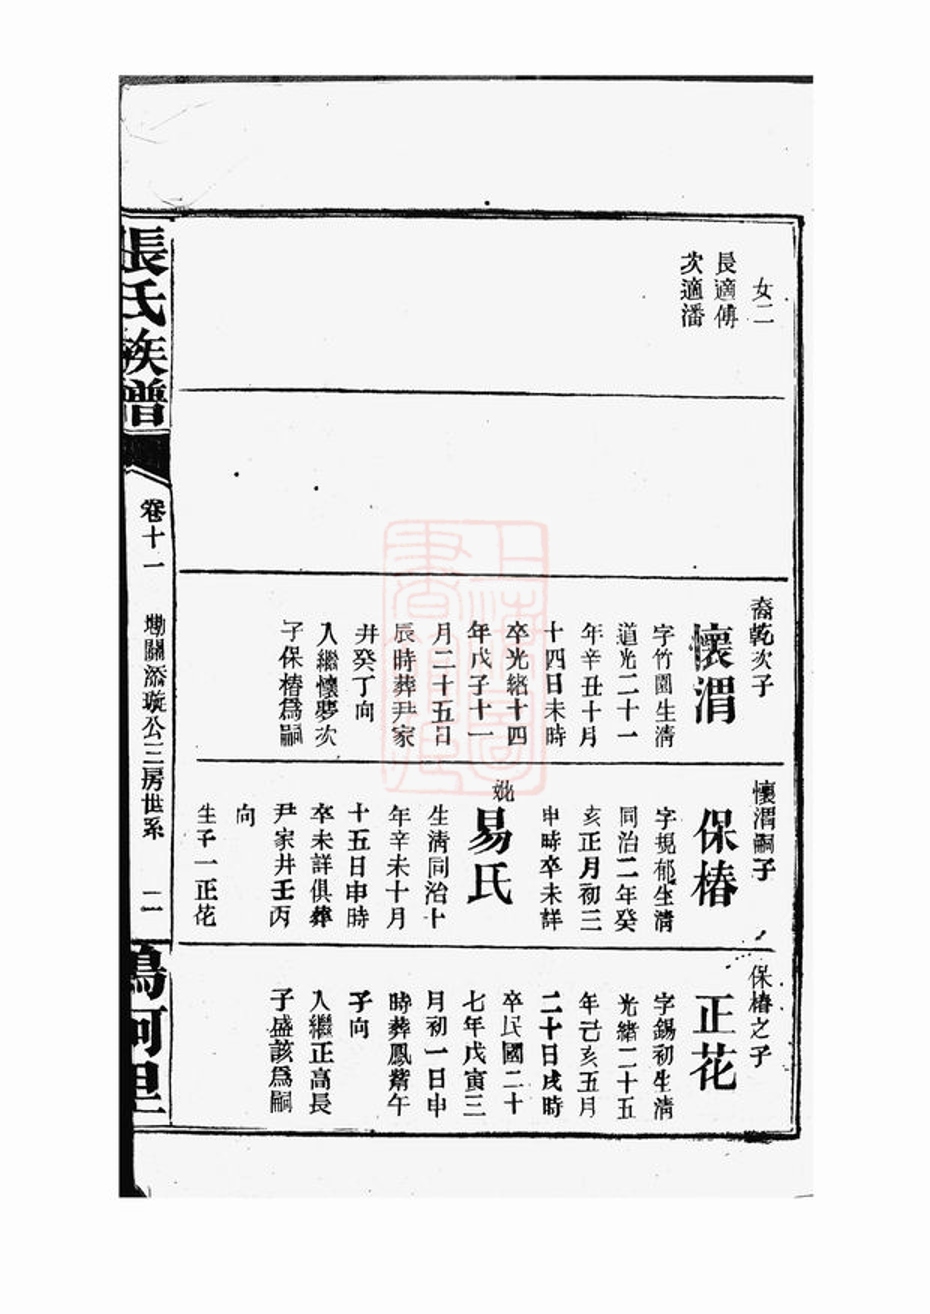 女二
長適傅
次適潘
裔乾次子
懷渭
字竹園生淸
道光二十一
年辛丑十月
十四日未時
卒光緒十四
年戊子十一
月二十五日
辰時葬尹家
井癸丁向
入繼懷夢次
子保椿爲嗣
懷渭嗣子
保椿
字規郁生淸
同治二年癸
亥正月初三
申時卒未詳
妣
易氏
生淸同治十
年辛未十月
十五日申時
卒未詳俱葬
尹家井壬丙
向
生子一正花
保椿之子
正花
字錫初生淸
光緒二十五
年己亥五月
二十日戌時
卒民國二十
七年戊寅三
月初一日申
時葬鳳觜午
子向
入繼正高長
子盛該爲嗣
張氏族譜
卷十一
坳關添璇公三房世系
二